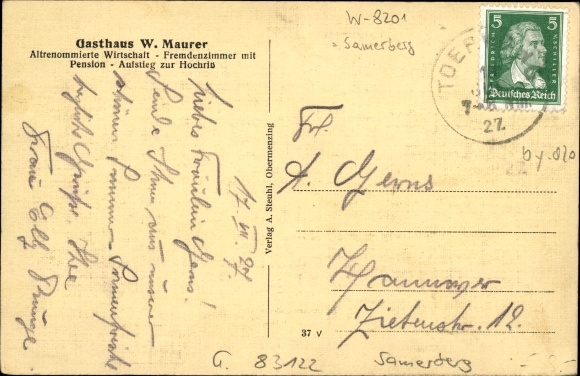 Gasthaus W. Maurer
Altrenommierte Wirtschaft - Fremdenzimmer mit
Pension - Aufstieg zur Hochriß
17. VII. 27.
Liebes Fräulein Gerns!
Sende Ihnen aus unserer
schönen Sommer-Sonnenfrische
herzliche Grüße. Ihre
Frau Elly
Verlag A. Steubl, Obermenzing
37 v
W-8201
Samerberg
5 5
FRIEDRICH V. SCHILLER
Deutsches Reich
TOER
27.
by-020
Frl.
A. Gerns
Hannover
Zietenstr. 12.
G. 83122
Samerberg